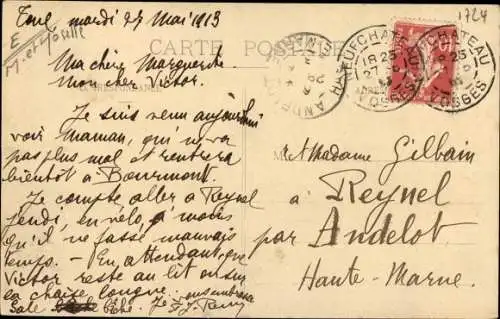 Toul, mardi 27 Mai 1913
E
M. et Moselle
1724
CARTE POSTALE
CORRESPONDANCE
Ma chère Marguerite
Mon cher Victor.
Je suis venu aujourd'hui
voir Maman, qui ne va
pas plus mal et rentrera
bientôt à Bourmont.
Je compte aller à Reynel
jeudi, en vélo, à moins
qu'il ne fasse mauvais
temps. - En attendant, que
Victor reste au lit ou sur
la chaise longue.
Je
NEUFCHATEAU
VOSGES
NEUFCHATEAU
VOSGES
Madame Gilbain
à Reynel
par Andelot
Haute-Marne.